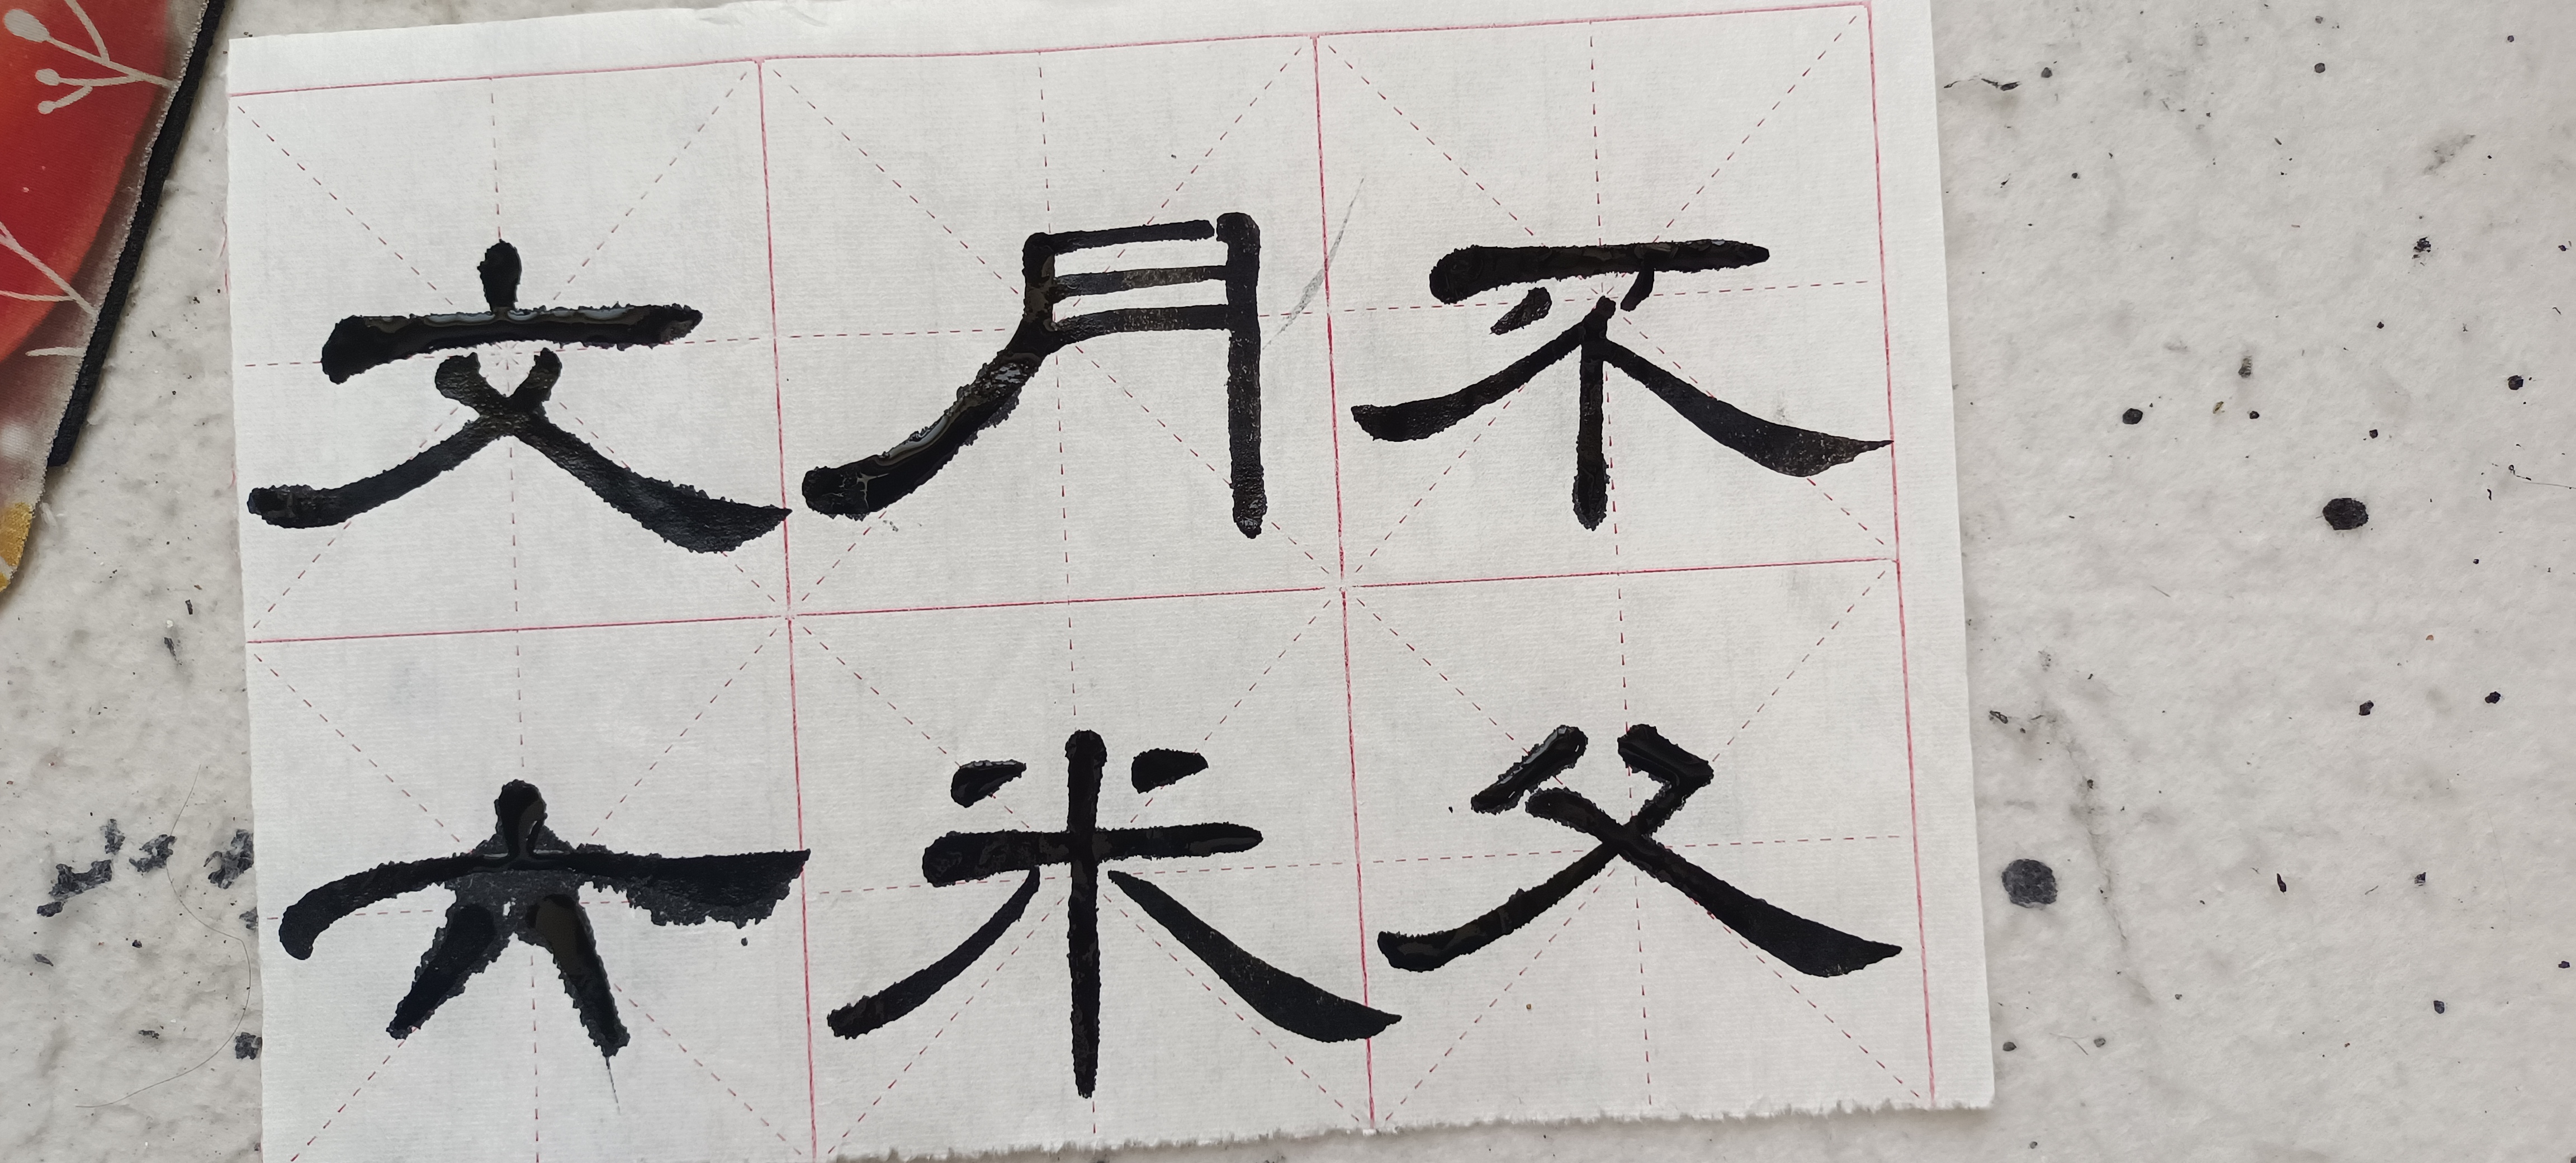 文月不
六米父